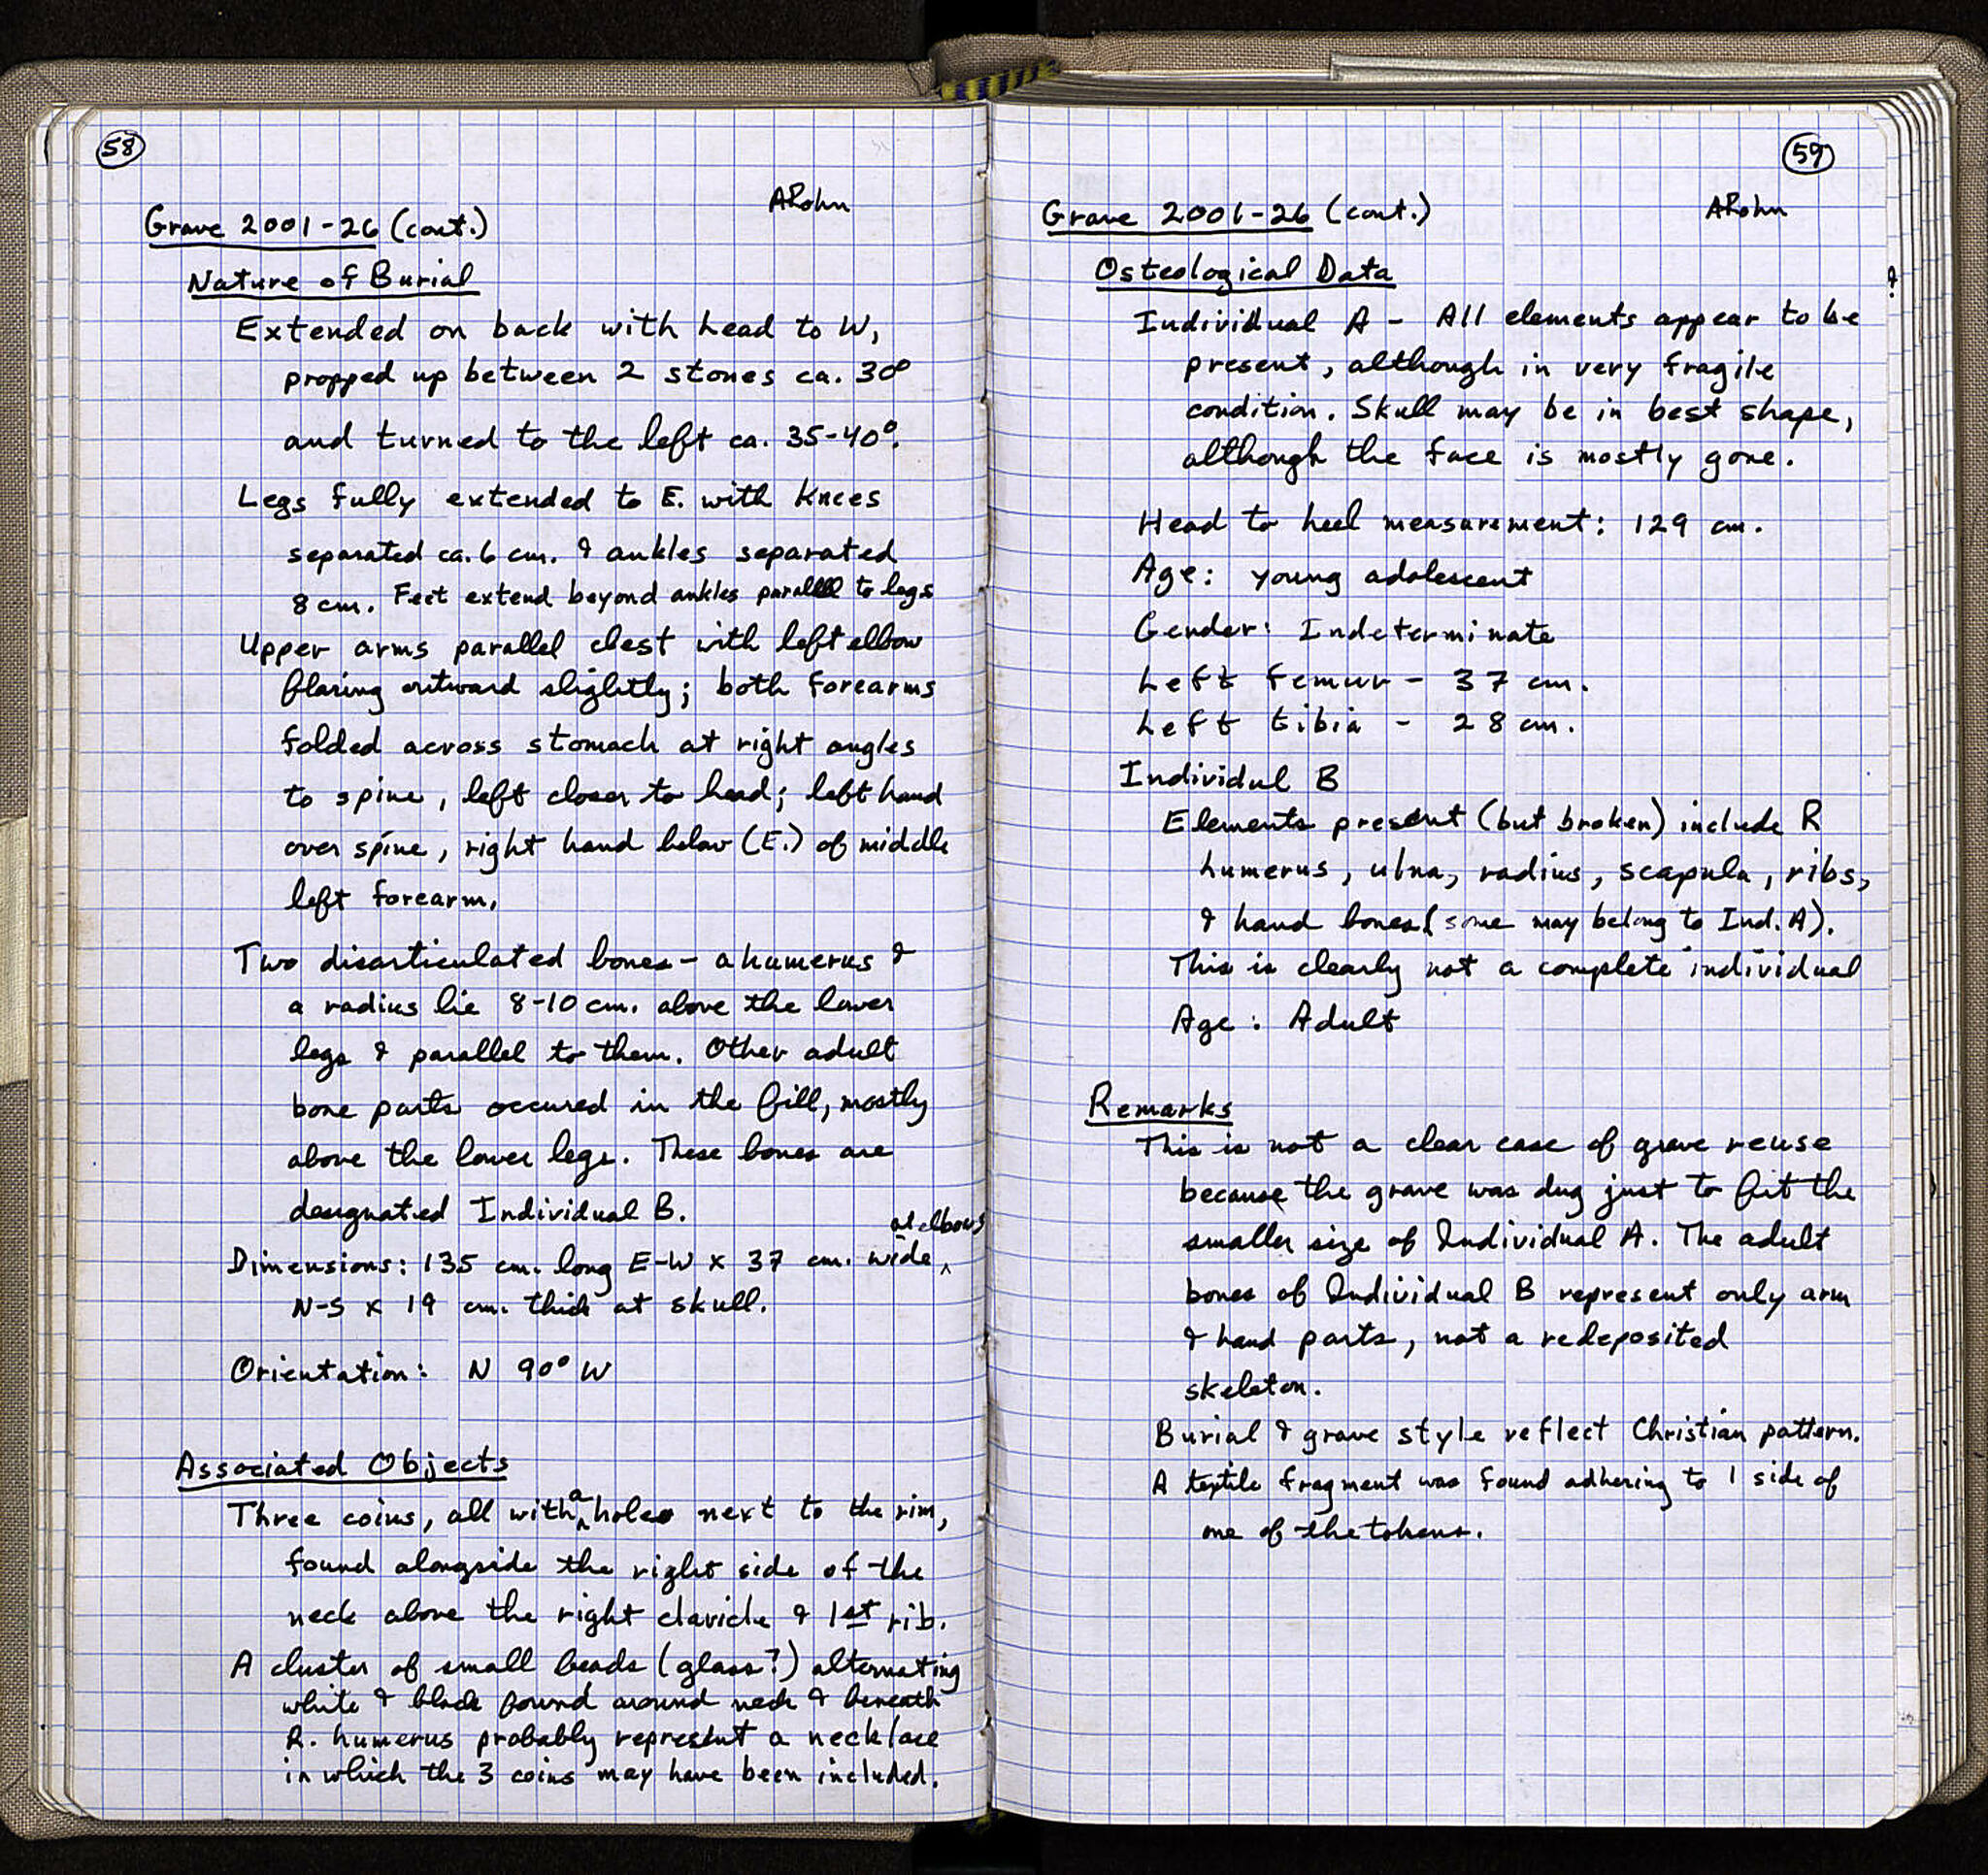 58
ARohn
Grave 2001-26 (cont.)
Nature of Burial
Extended on back with head to W,
propped up between 2 stones ca. 30°
and turned to the left ca. 35-40°.
Legs fully extended to E. with knees
separated ca. 6 cm. & ankles separated
8 cm. Feet extend beyond ankles parallel to legs
Upper arms parallel chest with left elbow
flaring outward slightly; both forearms
folded across stomach at right angles
to spine, left closer to head; left hand
over spine, right hand below (E.) of middle
left forearm.
Two disarticulated bones - a humerus &
a radius lie 8-10 cm. above the lower
legs & parallel to them. Other adult
bone parts occured in the fill, mostly
above the lower legs. These bones are
designated Individual B.
at elbows
Dimensions: 135 cm. long E-W x 37 cm. wide ^
N-S x 19 cm. thick at skull.
Orientation: N 90° W
Associated Objects
Three coins, all with a hole next to the rim,
found alongside the right side of the
neck above the right clavicle & 1st rib.
A cluster of small beads (glass?) alternating
white & black found around neck & beneath
R. humerus probably represent a necklace
in which the 3 coins may have been included.
59
ARohn
Grave 2001-26 (cont.)
Osteological Data
Individual A - All elements appear to be
present, although in very fragile
condition. Skull may be in best shape,
although the face is mostly gone.
Head to heel measurement: 129 cm.
Age: young adolescent
Gender: Indeterminate
Left femur - 37 cm.
Left tibia - 28 cm.
Individul B
Elements present (but broken) include R
humerus, ulna, radius, scapula, ribs,
& hand bones (some may belong to Ind. A).
This is clearly not a complete individual
Age: Adult
Remarks
This is not a clear case of grave reuse
because the grave was dug just to fit the
smaller size of Individual A. The adult
bones of Individual B represent only arm
& hand parts, not a redeposited
skeleton.
Burial & grave style reflect Christian pattern.
A textile fragment was found adhering to 1 side of
one of the tokens.